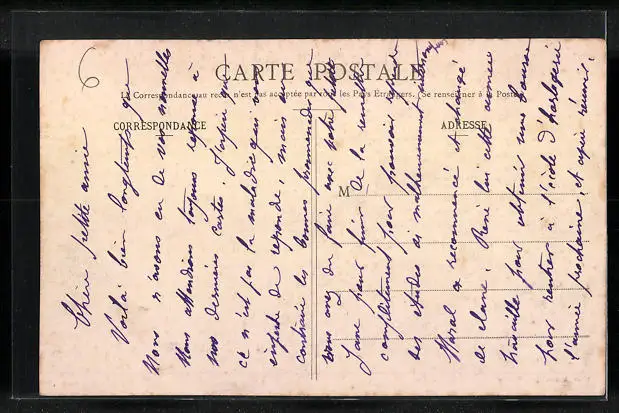 6
CARTE POSTALE
La Correspondance au recto n'est pas acceptée par tous les Pays Etrangers. (Se renseigner à la Poste)
CORRESPONDANCE
ADRESSE
M
Chère petite amie
Voilà bien longtemps que
nous n'avons eu de vos nouvelles
Nous attendions toujours réponse à
nos dernières cartes. J'espère que
ce n'est pas la maladie qui vous
empêche de répondre mais au
contraire les bonnes promenades que
vous avez dû faire avec votre petite
Jane pour jouir de la
complètement pour pouvoir
ses études si malheureusement
Maral a recommencé et changé
de classe. René lui cette année
travaille pour obtenir une bourse
pour rentrer à l'école d'horlogerie
l'année prochaine, et après réussir.